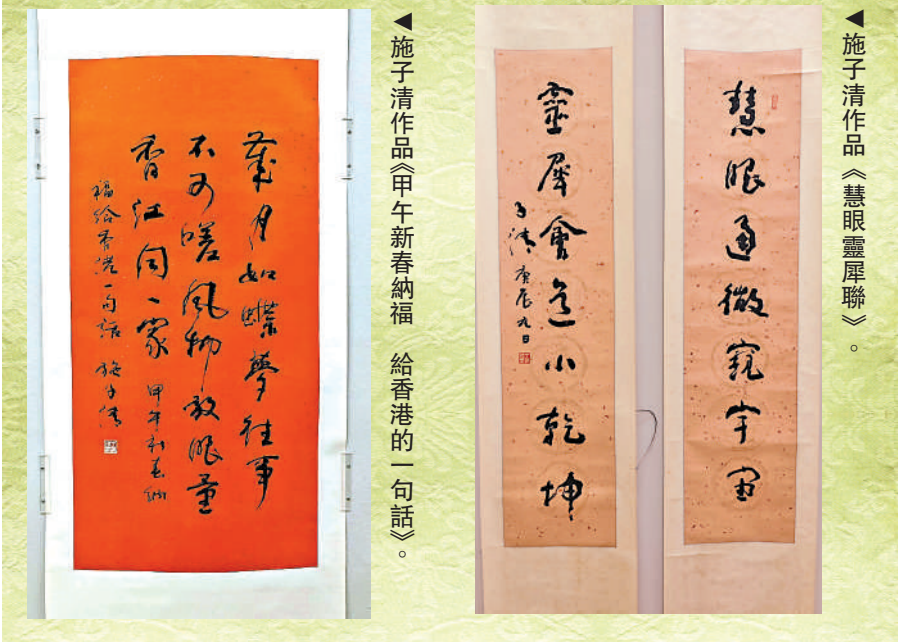 ◀施子清作品《慧眼靈犀聯》。
慧眼通微窺宇宙
靈犀會意小乾坤
子清 庚辰九日
◀施子清作品《甲午新春納福 給香港的一句話》。
歲月如蝶夢往事
不可嗟風物放眼量
香江同一家 甲午新春納
福給香港一句話 施子清